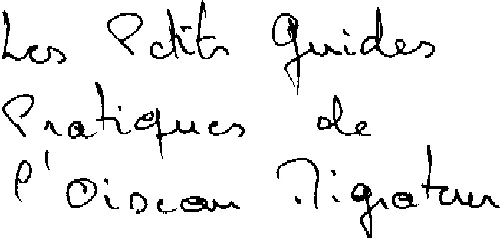 Les Petits Guides
Pratiques de
l'Oiseau Migrateur